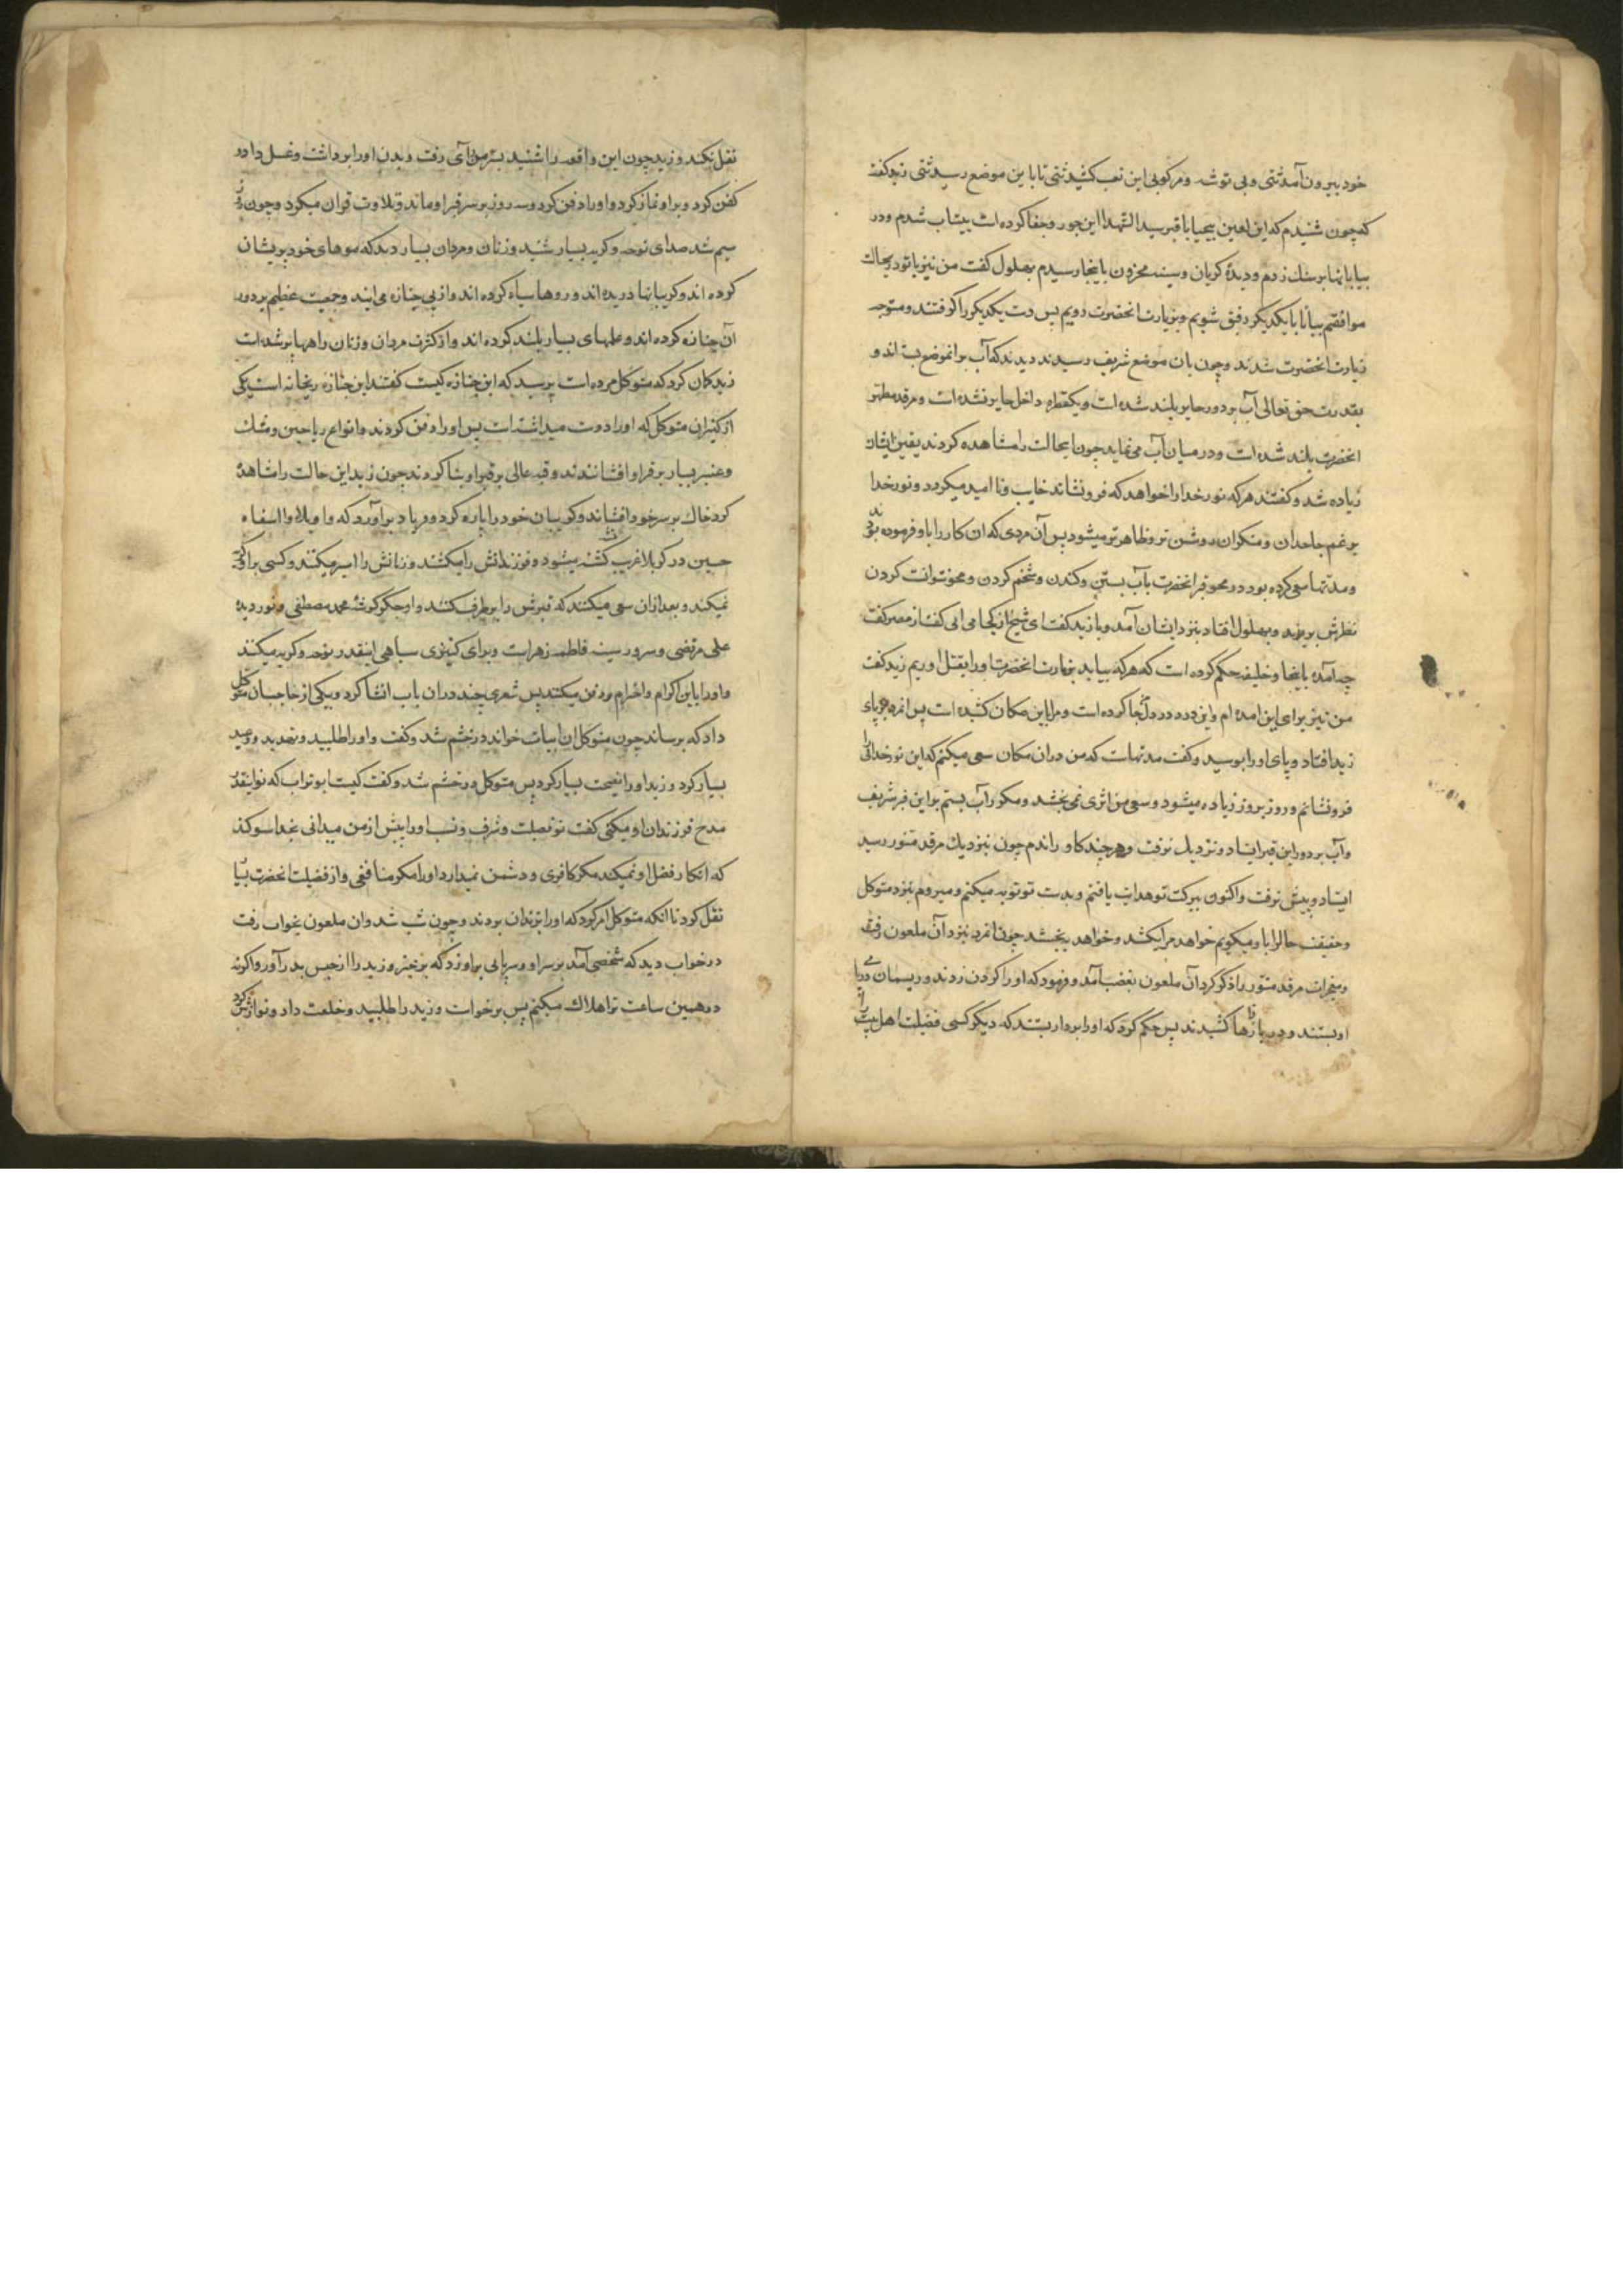 خود بیرون آمدشتی و بی توشه و مرکوبی این تعب کشیدشتی تا باین موضع رسیدشتی زید گفت
که چون شنیدم که این لعین بیحیا با قبر سید الشهدا این جور و جفا کرده است بیتاب شدم و در
بیابانها بر سنک زدم و دیدهٔ کریان و سینه محزون باینجا رسیدم بهلول کفت من نیز با تو درینحالت
موافقم بیا تا با یکدیکر رفیق شویم و بزیارت انحضرت رویم پس دست یکدیکر را کرفتند و متوجه
زیارت انحضرت شدند و چون بان موضع شریف رسیدند دیدند که آب برانموضع بسته اند و
بقدرت حق تعالی آب بر دور حایر بلند شده است و یکقطره داخل حایر نشده است و مرقد مطهر
انحضرت بلند شده است و در میان آب می نماید چون اینحالت را مشاهده کردند یقین ایشان
زیاده شد و کفتند هر که نور خدا را خواهد که فرونشاند خایب و نا امید میکردد و نور خدا
برغم جاحدان و منکران روشن تر و ظاهرتر میشود پس آن مردی که ان کار را باو فرموده بودند
و مدتها سعی کرده بود در محو قبر انحضرت بآب بستن و کندن و شخم کردن و محو نتوانست کردن
نظرش بر زید و بهلول افتاد بنزد ایشان آمد و با زید کفت ای شیخ از کجا می ائی کفت از مصر کفت
چه آمدهٔ باینجا و خلیفه حکم کرده است که هر که بیاید بزیارت انحضرت اورا بقتل اوریم زید کفت
من نیز برای این امده ام و این درد در دلم جا کرده است و مرا باین مکان کشیده است پس انمرد بر پای
زید افتاد و پای اورا بوسید و کفت مدتهاست که من دران مکان سعی میکنم که این نور خدائی را
فرونشانم و روز بروز زیاده میشود و سعی من اثری نمی بخشد و مکرر آب بستم بر این قبر شریف
و آب بر دور این قبر ایستاد و نزدیک نرفت و هر چند کاو راندم چون بنزدیک مرقد منور رسید
ایستاد و پیش نرفت و اکنون ببرکت تو هدایت یافتم و بدست تو توبه میکنم و میروم بنزد متوکل
و حقیقت حالرا باو میکویم خواهد مرا بکشد و خواهد ببخشد چون انمرد بنزد آن ملعون رفت
و معجزات مرقد منور را ذکر کرد آن ملعون بغضب آمد و فرمود که او را کردن زدند و ریسمان در پای
او بستند و در بازارها کشیدند پس حکم کرد که اورا بردار بستند که دیکر کسی فضیلت اهل بیت را
نقل نکند و زید چون این واقعه را شنید بسر من رای رفت و بدن اورا برداشت و غسل داد و
کفن کرد و بر او نماز کرد و اورا دفن کرد و سه روز بر سر قبر او ماند و تلاوت قران میکرد و چون روز
سیم شد صدای نوحه و کریه بسیار شنید و زنان و مردان بسیار دید که موهای خود پریشان
کرده اند و کریبانها دریده اند و روها سیاه کرده اند و از پی جنازه می ایند و جمعیت عظیم بر دور
آن جنازه کرده اند و علمهای بسیار بلند کرده اند و از کثرت مردان و زنان راهها پر شده است
زید کمان کرد که متوکل مرده است پرسید که این جنازه کیست کفتند این جنازه ریحانه است یکی
از کنیزان متوکل که اورا دوست میداشته است پس اورا دفن کردند و انواع ریاحین و مشک
و عنبر بسیار بر قبر او افشاندند و قبه عالی بر قبر او بنا کردند چون زید این حالت را مشاهدهٔ
کرد خاک بر سر خود افشاند و کریبان خود را پاره کرد و فریاد برآورد که واویلاه وا اسفاه
حسین در کربلا غریب کشته میشود و فرزندانش را میکشند و زنانش را اسیر میکنند و کسی براو کریه
نمیکند و بعد ازان سعی میکنند که قبرش را برطرف کنند و او جکر کوشهٔ محمد مصطفی و نور دیده
علی مرتضی و سرور سینه فاطمه زهراست و برای کنیزی سیاهی اینقدر نوحه و کریه میکنند
و اورا باین اکرام و احترام دفن میکنند پس شعری چند دران باب انشا کرد و بیکی از حاجبان متوکل
داد که برساند چون متوکل ان ابیات خواند در خشم شد و کفت و اورا طلبید و تهدید و وعید
بسیار کرد و زید اورا نصیحت بسیار کرد پس متوکل در خشم شد و کفت کیست ابوتراب که تو اینقدر
مدح فرزندان او میکنی کفت تو فضیلت و شرف و نسب اورا پیش از من میدانی بخدا سوکند
که انکار فضل او نمیکند مکر کافری و دشمن نمیدارد اورا مکر منافقی و از فضیلت انحضرت بسیار
نقل کرد تا انکه متوکل امر کرد که اورا بزندان بردند و چون شب شد و ان ملعون بخواب رفت
در خواب دید که شخصی آمد بر سر او و سرپائی بر او زد که برخیز و زید را از حبس بدر آور و اکرنه
درهمین ساعت ترا هلاک میکنم پس برخواست و زید را طلبید و خلعت داد و نوازش کرد